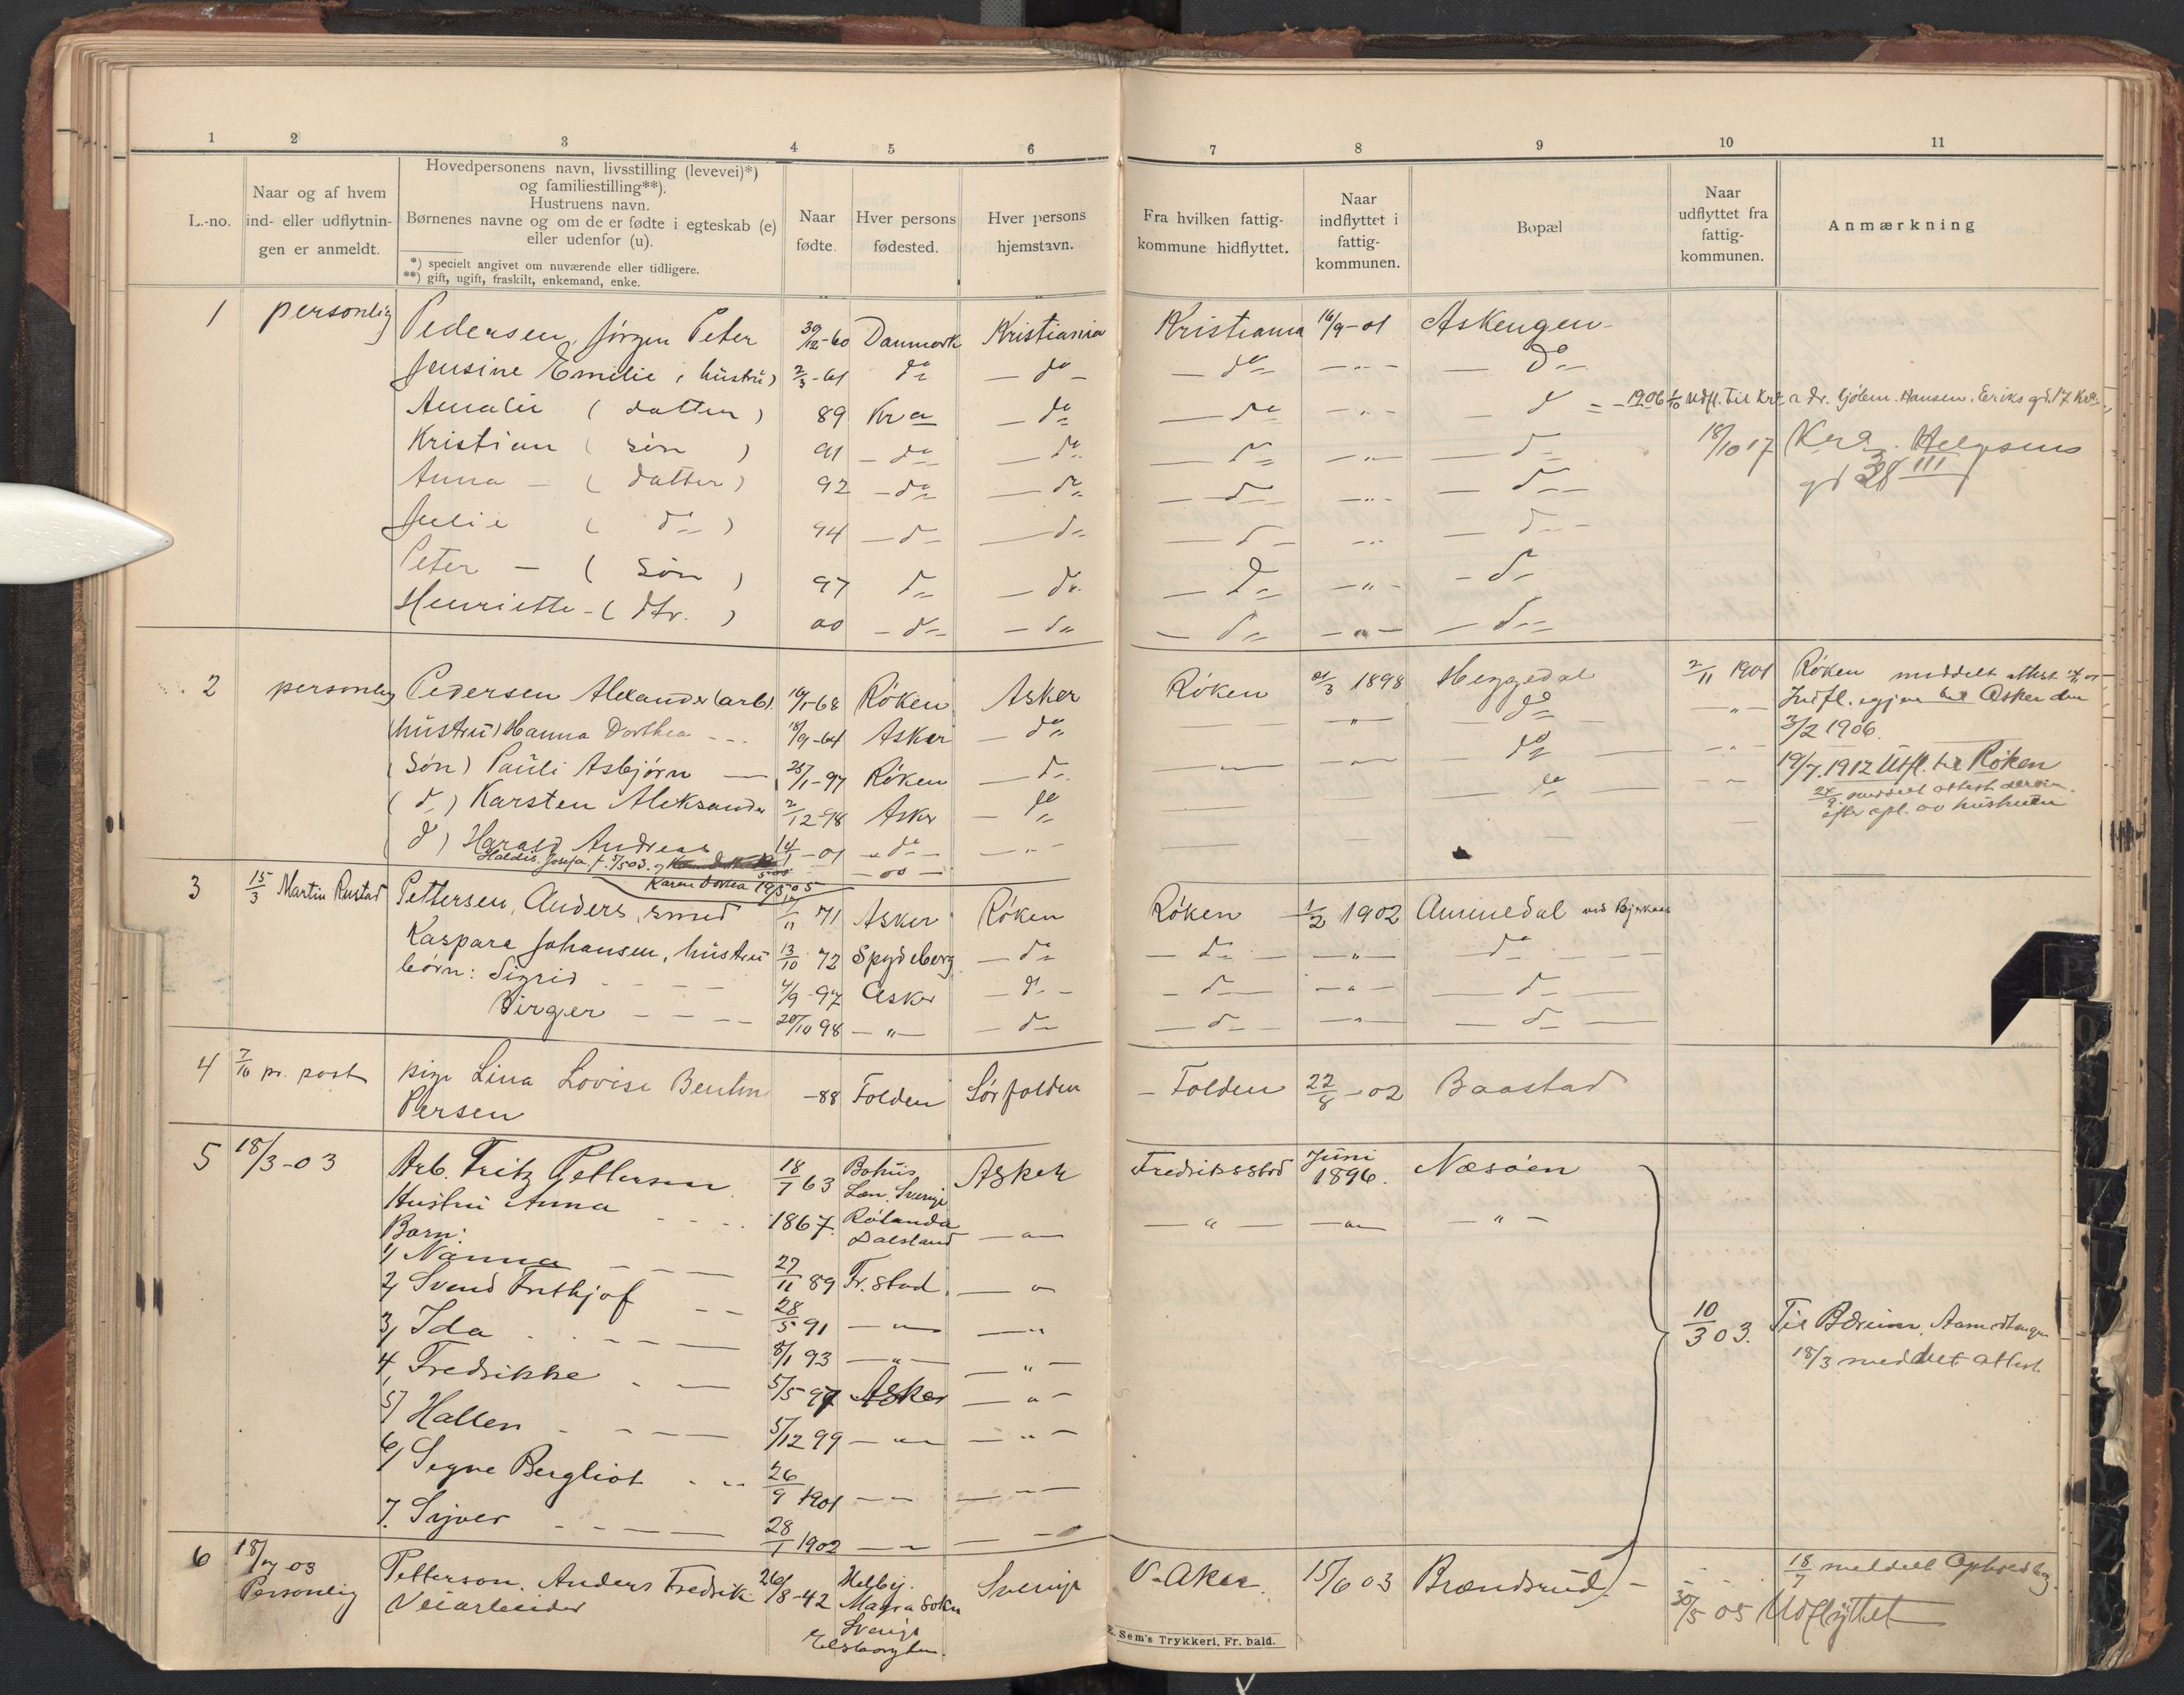 1 2 3 4 5 6 7 8 9 10 11
L.-no.
Naar og af hvem
ind- eller udflytnin-
gen er anmeldt.
Hovedpersonens navn, livsstilling (levevei)*)
og familiestilling**).
Hustruens navn.
Børnenes navne og om de er fødte i egteskab (e)
eller udenfor (u).
*) specielt angivet om nuværende eller tidligere.
**) gift, ugift, fraskilt, enkemand, enke.
Naar
fødte.
Hver persons
fødested.
Hver persons
hjemstavn.
Fra hvilken fattig-
kommune hidflyttet.
Naar
indflyttet i
fattig-
kommunen.
Bopæl
Naar
udflyttet fra
fattig-
kommunen.
Anmærkning
1 personlig Pedersen, Jørgen Peter 30/12-60 Danmark Kristiania Kristiania 16/9-01 Askengen
Jensine Emilie (hustru) 2/3-61 do do do - " - do
Amalie (datter) 89 Kra do do - " - do 1906 Udfl. til Kra Hansen, Eriks gd. 17 Kra
Kristian (søn) 91 do do do - " - do 18/10 17 Kra. Helgesens
gd 38 III
Anna - (datter) 92 do do do - " - do
Julie (do) 94 do do do - " - do
Peter - (søn) 97 do do do - " - do
Henriette - (dtr.) 00 do do do - " - do
2 personlig Pedersen Alexander (arb). 68 Røken Asker Røken 1898 Heggedal 2/11 1901 Røken meddelt attest
(hustru) Hanna Dorthea 18/9-64 Asker do " do - " - Indfl. igjen til Asker den
3/2 1906.
(Søn) Pauli Asbjørn 25/1-97 Røken do - " - do - " - 19/7 1912 Utfl. til Røken
(d) Karsten Aleksander 2/12-98 Asker do do meddelt attest
efter opl. av hustruen
d) Harald Andreas 14/1-01 do - " -
Haldis Josefa f. 5/5 03. og
Karen Dortea 19/5 05
3 15/3 Martin Rustad Pettersen, Anders, smed 71 Asker Røken Røken 1/2 1902 Ammedal ved Bjerkaas
Kaspara Johansen, hustru 13/10 72 Spydeberg do do - " - do
børn: Sigrid 4/9-97 Asker do do - " - do
Birger 20/10 98 - " - do do - " - do
4 7/10 pr. post pige Lina Lovise -88 Folden Sørfolden Folden 22/8-02 Baastad
Persen
5 18/3-03 Arb. Fritz Pettersen 18/7 63 Bohus Asker Fredriksstad Juni 1896. Næsøen
Læn. Sverige
Hustru Anna 1867. Rølanda - " - - " - - " - - " -
Dalsland
Barn:
1/ Nanna 27/11 89 Fr.stad. - " -
2/ Svend Frithjof 28/5 91 - " - - " -
3/ Ida 8/1 93 - " - - " - 10/3 03. Til Bærum,
4/ Fredrikke 5/5 97 Asker - " - 18/3 meddelt attest
5/ Hallen 5/12 99 - " - - " -
6/ Segne Bergliot 26/9 1901 - " - - " -
7. Sijver 28/1 1902 - " - - " -
6 18/7 03 Petterson. Anders Fredrik 26/8-42 Sverige V. Aker. 15/6 03 Brændsrud 18/7 meddelt
Personlig Veiarbeider Sverige
Elfsborg len. 30/5 05 Udflyttet
E. Sem's Trykkeri, Fr. hald.